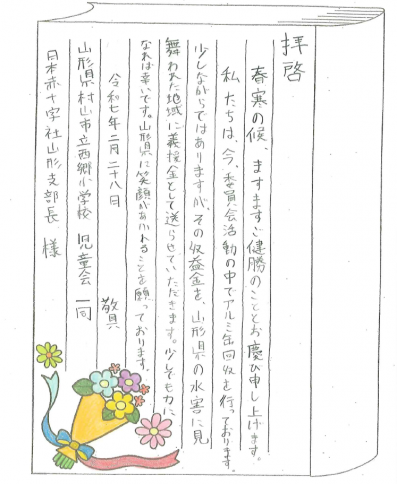 拝啓
春寒の候、ますますご健勝のこととお慶び申し上げます。
私たちは、今、委員会活動の中でアルミ缶回収を行っております。
少しながらではありますが、その収益金を、山形県の水害に見
舞われた地域に義援金として送らせていただきます。少しでも力に
なれば幸いです。山形県に笑顔があふれることを願っております。
敬具
令和七年二月二十八日
山形県村山市立西郷小学校 児童会一同
日本赤十字社山形支部長 様